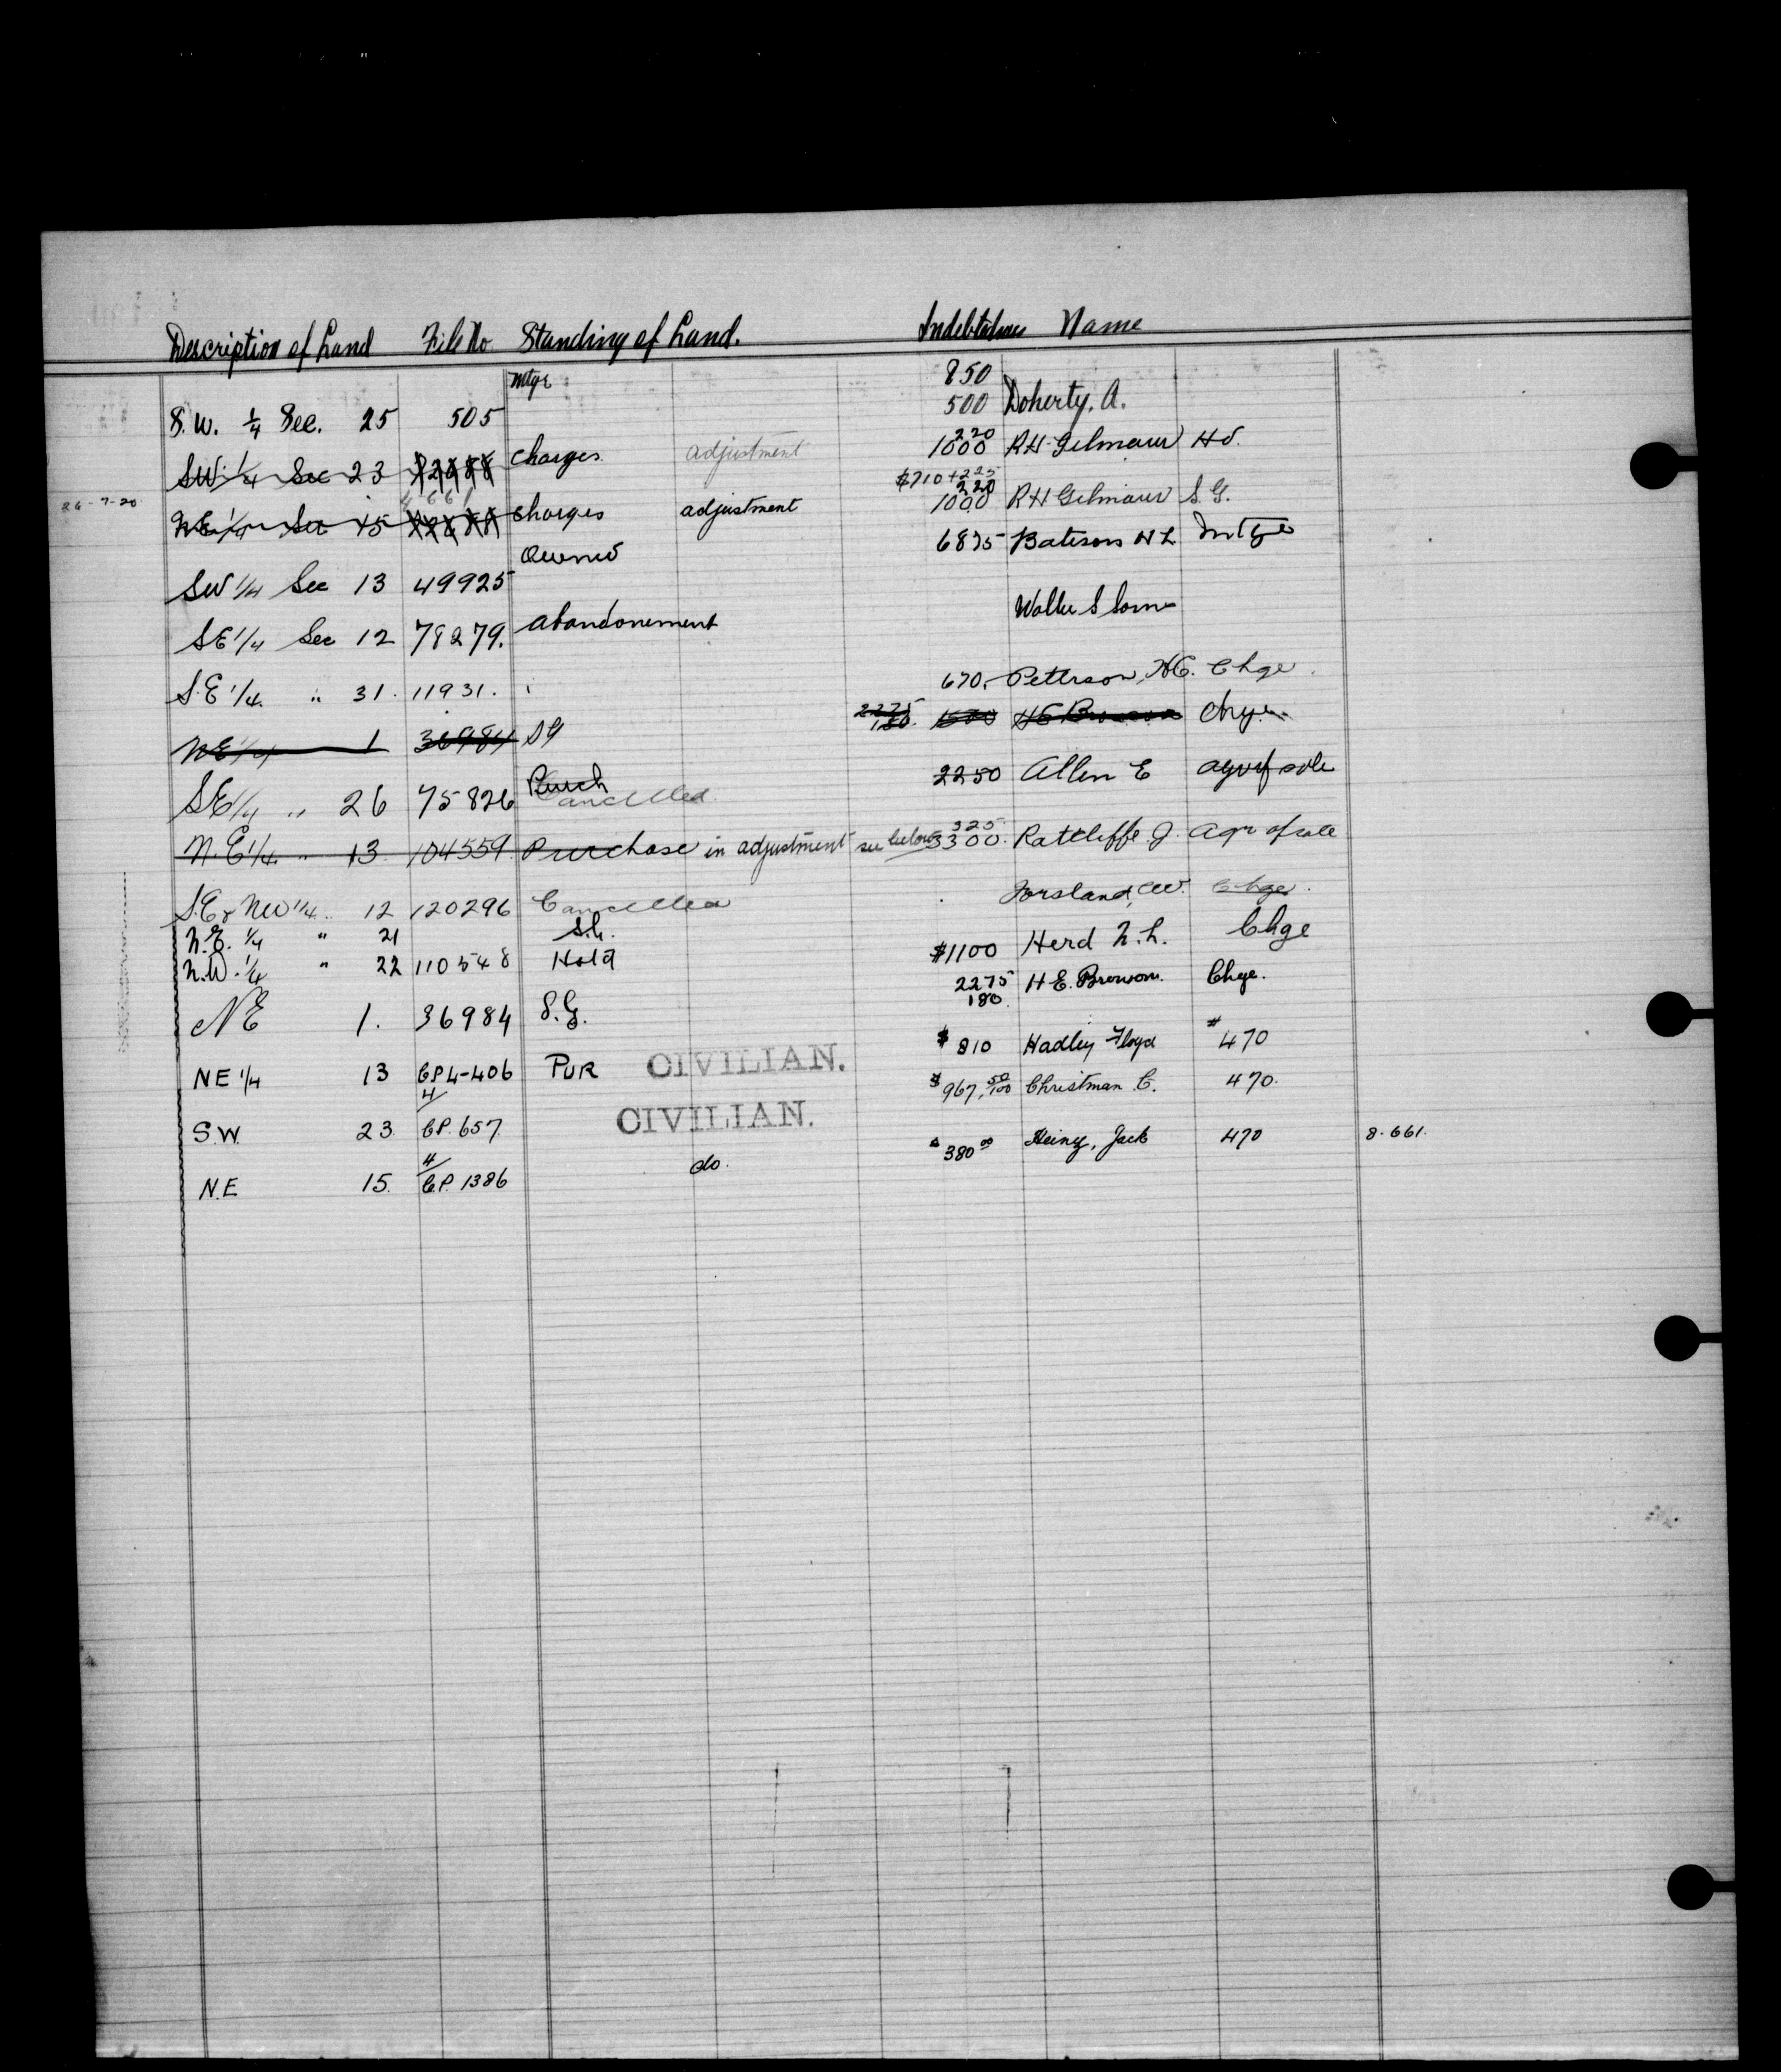 Description of Land File No Standing of Land. Indebtedness Name
S.W. 1/4 Sec. 25 505 Mtge 850 500 Doherty, A.
SW 1/4 Sec 23 charges adjustment 220 1000 RH Gilmour Hd.
26-7-20 NE 1/4 Sec 15 charges adjustment $710 + 225 220 1000 RH Gilmour S.G.
SW 1/4 Sec 13 49925 Owned 6875 Bateson H L Mtge
SE 1/4 Sec 12 78279. abandonement
S.E 1/4. " 31. 11931. 670. Petterson, Chge.
NE 1/4 1 36984 SG 2275 180. Chge.
SE 1/4 " 26 75826 Purch Cancelled 2250 Allen E agr of sale
N.E 1/4. " 13. 104559. Purchase in adjustment see below 325. 3300. Ratcliffe J. Agr of sale
S.E & NW 1/4 " 12 120296 Cancelled Forsland, Chge.
N.E. 1/4 " 21
N.W. 1/4 " 22 110548 Hold $1100 Herd N.L. Chge
NE 1. 36984 S.G. 2275 180. H.E. Chge.
NE 1/4 13 CP4-406 PUR CIVILIAN. $810 Hadley Floyd #470
S.W. 23. 4/ C.P. 657. CIVILIAN. $967.50/100 Christman C. 470.
N.E 15. 4/ C.P. 1386 do. $380.00 Heiny, Jack 470 8-661.